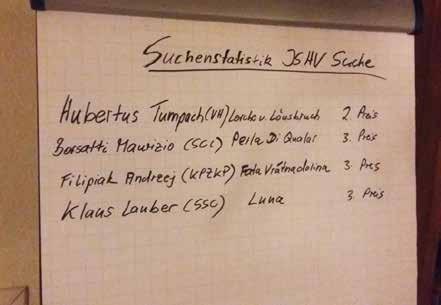 Suchenstatistik JSHV Suche
Hubertus Tumpach (VH) Lorcko v. Lönsbruch 2. Preis
Borsatti Maurizio (SCI) Perla Di Qualai 3. Preis
Filipiak Andrzej (KPZKP) Fata Vrátnadolina 3. Preis
Klaus Lauber (SSC) Luna 3. Preis